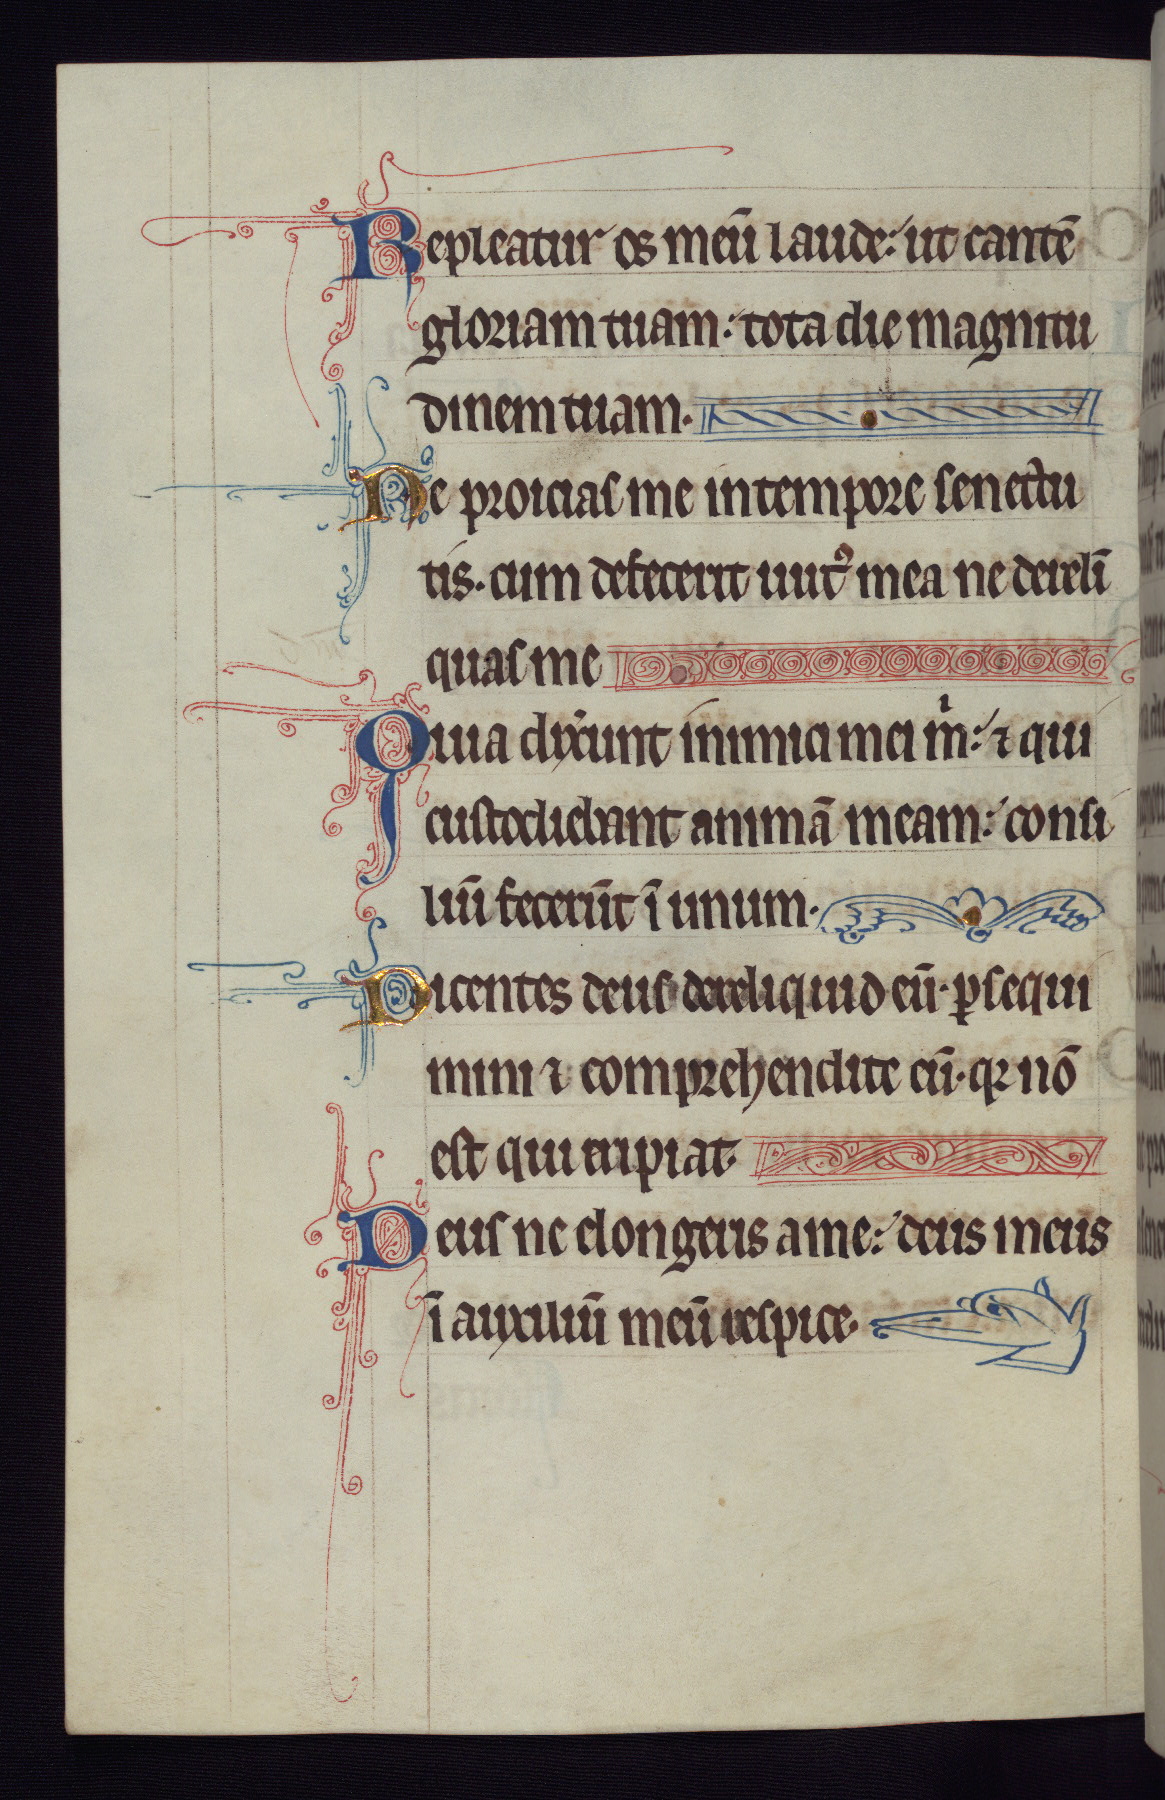 Repleatur os meū laude: ut cantē
gloriam tuam: tota die magnitu
dinem tuam.
Ne proicias me in tempore senectu
tis. cum defecerit uirt᷒ mea ne dereli̅
quas me
Quia dix̓unt inimici mei m̍: ⁊ qui
custodiebant animā meam: consi
liū fecerūt ī unum.
Dicentes deus dereliquid eū. ꝑsequi
mini ⁊ comprehendite eū. qꝛ nō
est qui eripiat.
Deus ne elongeris a me: deus meus
ī auxiliū meū respice.